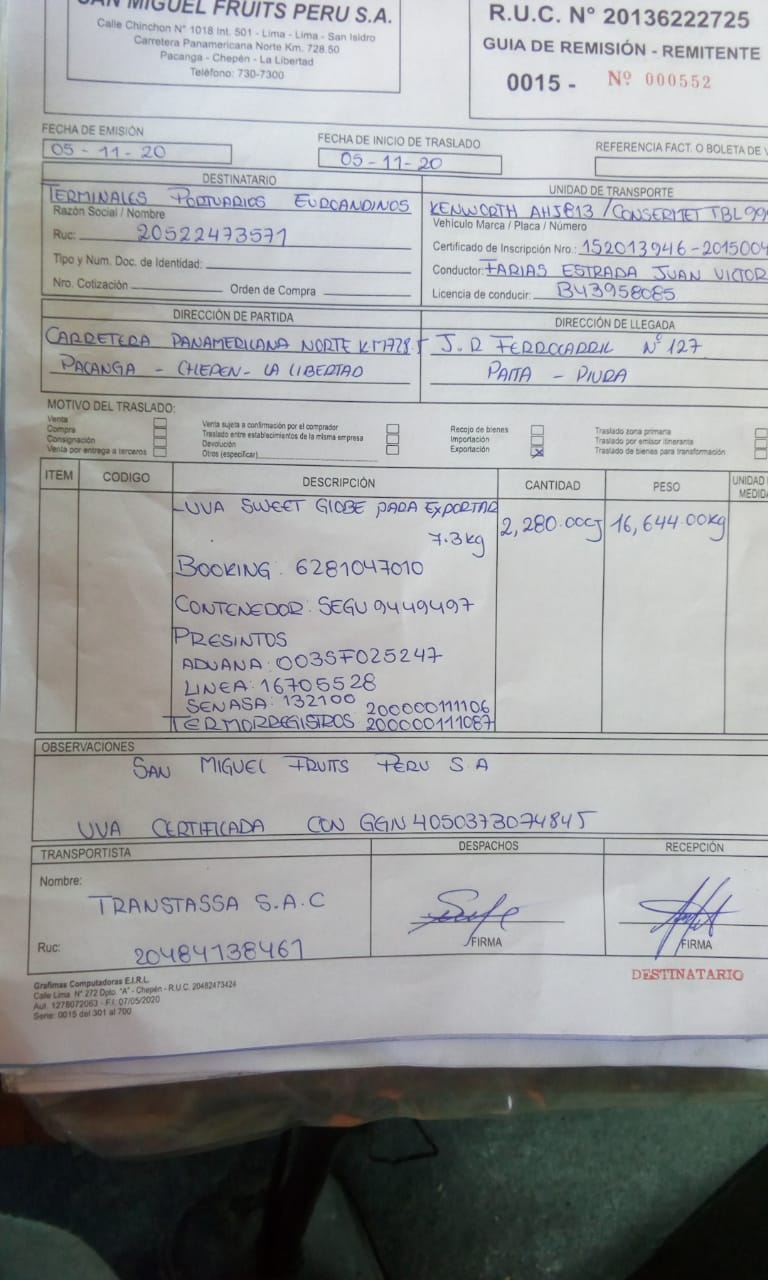 SAN MIGUEL FRUITS PERU S.A.
Calle Chinchon N° 1018 Int. 501 - Lima - Lima - San Isidro
Carretera Panamericana Norte Km. 728.50
Pacanga - Chepén - La Libertad
Teléfono: 730-7300
R.U.C. N° 20136222725
GUIA DE REMISIÓN - REMITENTE
0015 - Nº 000552
FECHA DE EMISIÓN
05 - 11 - 20
FECHA DE INICIO DE TRASLADO
05 - 11 - 20
REFERENCIA FACT. O BOLETA DE V
DESTINATARIO
TERMINALES PORTUARIOS EUROANDINOS
Razón Social / Nombre
Ruc: 20522473571
Tipo y Num. Doc. de Identidad:
Nro. Cotización Orden de Compra
UNIDAD DE TRANSPORTE
KENWORTH AHJ813 / CONSERMET TBL 99
Vehículo Marca / Placa / Número
Certificado de Inscripción Nro.: 152013946-2015004
Conductor: FARIAS ESTRADA JUAN VICTOR
Licencia de conducir: B43958085
DIRECCIÓN DE PARTIDA
CARRETERA PANAMERICANA NORTE KM728.5
PACANGA - CHEPEN - LA LIBERTAD
DIRECCIÓN DE LLEGADA
J.R FERROCARRIL N° 127
PAITA - PIURA
MOTIVO DEL TRASLADO:
Venta
Compra
Consignación
Venta por entrega a terceros
Venta sujeta a confirmación por el comprador
Traslado entre establecimientos de la misma empresa
Devolución
Otros (especificar)
Recojo de bienes
Importación
Exportación X
Traslado zona primaria
Traslado por emisor itinerante
Traslado de bienes para transformación
ITEM CODIGO DESCRIPCIÓN CANTIDAD PESO UNIDAD
MEDID
- UVA SWEET GLOBE PARA EXPORTAR
7.3 kg
2,280.00CJ 16,644.00kg
BOOKING: 6281047010
CONTENEDOR: SEGU 9449497
PRESINTOS
ADUANA: 003SF025247
LINEA: 16705528
SENASA: 132100
200000111106
TERMORREGISTROS 200000111087
OBSERVACIONES
SAN MIGUEL FRUITS PERU S A
UVA CERTIFICADA CON GGN 4050373074845
TRANSPORTISTA
Nombre:
TRANSTASSA S.A.C
Ruc: 20484138461
DESPACHOS
FIRMA
RECEPCIÓN
FIRMA
DESTINATARIO
Grafimas Computadoras E.I.R.L.
Calle Lima N° 272 Dpto. "A" - Chepén - R.U.C. 20482473424
Aut. 1278072063 - F.I. 07/05/2020
Serie: 0015 del 301 al 700